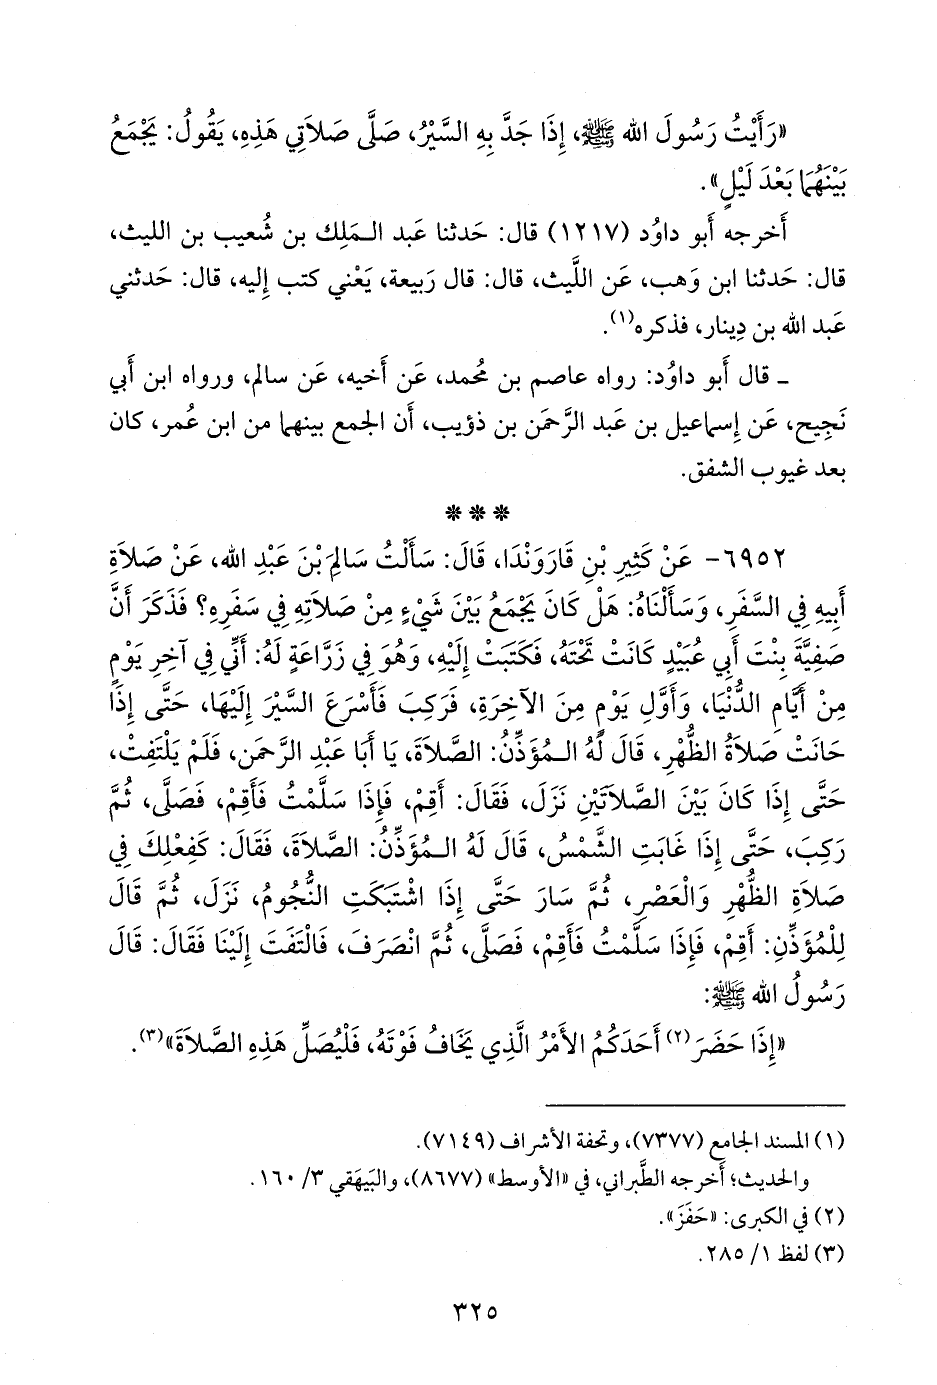 «رَأَيْتُ رَسُولَ الله ﷺ، إِذَا جَدَّ بِهِ السَّيْرُ، صَلَّى صَلاَتِي هَذِهِ، يَقُولُ: يَجْمَعُ
بَيْنَهُمَا بَعْدَ لَيْلٍ».
أَخرجه أَبو داوُد (١٢١٧) قال: حَدثنا عَبد الـمَلِك بن شُعيب بن الليث،
قال: حَدثنا ابن وَهب، عَن اللَّيث، قال: قال رَبيعة، يَعْني كتب إِليه، قال: حَدثني
عَبد الله بن دِينار، فذكره(١).
ـ قال أَبو داوُد: رواه عاصم بن مُحمد، عَن أَخيه، عَن سالم، ورواه ابن أَبي
نَجِيح، عَن إِسماعيل بن عَبد الرَّحمَن بن ذؤيب، أَن الجمع بينهما من ابن عُمر، كان
بعد غيوب الشفق.
* * *
٦٩٥٢- عَنْ كَثِيرِ بْنِ قَارَوَنْدَا، قَالَ: سَأَلْتُ سَالِمَ بْنَ عَبْدِ الله، عَنْ صَلاَةِ
أَبِيهِ فِي السَّفَرِ، وَسَأَلْنَاهُ: هَلْ كَانَ يَجْمَعُ بَيْنَ شَيْءٍ مِنْ صَلاَتِهِ فِي سَفَرِهِ؟ فَذَكَرَ أَنَّ
صَفِيَّةَ بِنْتَ أَبِي عُبَيْدٍ كَانَتْ تَحْتَهُ، فَكَتَبَتْ إِلَيْهِ، وَهُوَ فِي زَرَّاعَةٍ لَهُ: أَنِّي فِي آخِرِ يَوْمٍ
مِنْ أَيَّامِ الدُّنْيَا، وَأَوَّلِ يَوْمٍ مِنَ الآخِرَةِ، فَرَكِبَ فَأَسْرَعَ السَّيْرَ إِلَيْهَا، حَتَّى إِذَا
حَانَتْ صَلاَةُ الظُّهْرِ، قَالَ لَهُ الـمُؤَذِّنُ: الصَّلاَةَ، يَا أَبَا عَبْدِ الرَّحمَنِ، فَلَمْ يَلْتَفِتْ،
حَتَّى إِذَا كَانَ بَيْنَ الصَّلاَتَيْنِ نَزَلَ، فَقَالَ: أَقِمْ، فَإِذَا سَلَّمْتُ فَأَقِمْ، فَصَلَّى، ثُمَّ
رَكِبَ، حَتَّى إِذَا غَابَتِ الشَّمْسُ، قَالَ لَهُ الـمُؤَذِّنُ: الصَّلاَةَ، فَقَالَ: كَفِعْلِكَ فِي
صَلاَةِ الظُّهْرِ وَالْعَصْرِ، ثُمَّ سَارَ حَتَّى إِذَا اشْتَبَكَتِ النُّجُومُ، نَزَلَ، ثُمَّ قَالَ
لِلْمُؤَذِّنِ: أَقِمْ، فَإِذَا سَلَّمْتُ فَأَقِمْ، فَصَلَّى، ثُمَّ انْصَرَفَ، فَالْتَفَتَ إِلَيْنَا فَقَالَ: قَالَ
رَسُولُ الله ﷺ:
«إِذَا حَضَرَ(٢) أَحَدَكُمُ الأَمْرُ الَّذِي يَخَافُ فَوْتَهُ، فَلْيُصَلِّ هَذِهِ الصَّلاَةَ»(٣).
(١) المسند الجامع (٧٣٧٧)، وتحفة الأشراف (٧١٤٩).
والحديث؛ أَخرجه الطَّبراني، في «الأوسط» (٨٦٧٧)، والبَيهَقي ٣/ ١٦٠.
(٢) في الكبرى: «حَفَزَ».
(٣) لفظ ١/ ٢٨٥.
٣٢٥